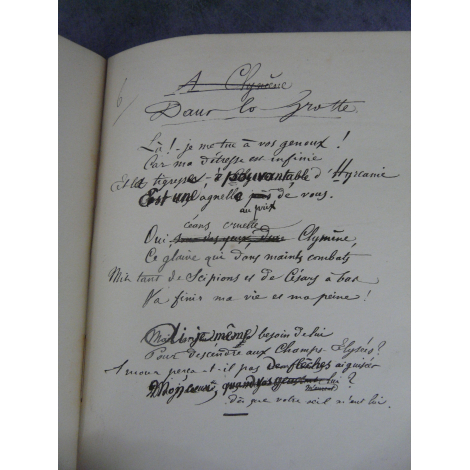 6/
A Clymène
Dans la Grotte.
Là ! - je me tue à vos genoux !
Car ma détresse est infinie
Et la tigresse épouvantable d'Hyrcanie
Est une agnelle au prix de vous.
Oui céans, cruelle Clymène,
Ce glaive qui dans maints combats
Mit tant de Scipions et de Césars à bas
Va finir ma vie et ma peine !
Ai-je même besoin de lui
Pour descendre aux Champs-Élysées ?
Amour perça-t-il pas de flèches aiguisées
Mon cœur,
dès que votre œil m'eut lui.